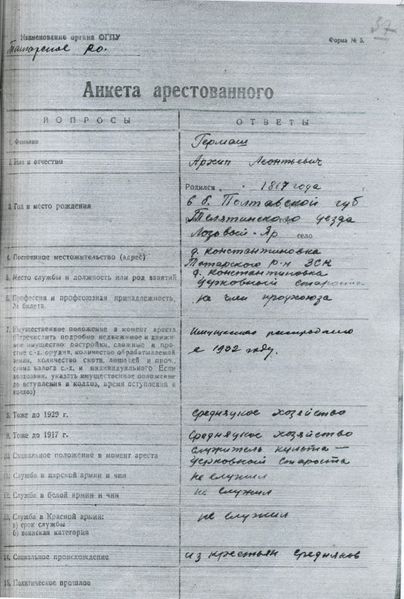 37
Наименование органа ОГПУ
Татарское РО.
Форма № 5.
Анкета арестованного
ВОПРОСЫ
ОТВЕТЫ
1. Фамилия
Гермаш
2. Имя и отчество
Архип Леонтьевич
3. Год и место рождения
Родился 1867 года
в б. Полтавской губ
уезда
Лозовый-Яр село
4. Постоянное местожительство (адрес)
д. Константиновка
Татарского р-н ЗСК
5. Место службы и должность или род занятий
д. Константиновка
церковный староста
6. Профессия и профсоюзная принадлежность, № билета
не член профсоюза
7. Имущественное положение в момент ареста
(Перечислить подробно недвижимое и движимое
имущество: постройки, сложные и простые
с.-х. орудия, количество обрабатываемой
земли, количество скота, лошадей и проч.,
сумма налога с.-х. и индивидуального. Если
колхозник, указать имущественное положение
до вступления в колхоз, время вступления в
колхоз)
Имущество распродано
в 1932 году.
8. Тоже до 1929 г.
Средняцкое хозяйство
9. Тоже до 1917 г.
Средняцкое хозяйство
10. Социальное положение в момент ареста
служитель культа —
церковный староста
11. Служба в царской армии и чин
не служил
12. Служба в белой армии и чин
не служил
13. Служба в Красной армии:
а) срок службы
б) воинская категория
не служил
14. Социальное происхождение
из крестьян средняков
15. Политическое прошлое